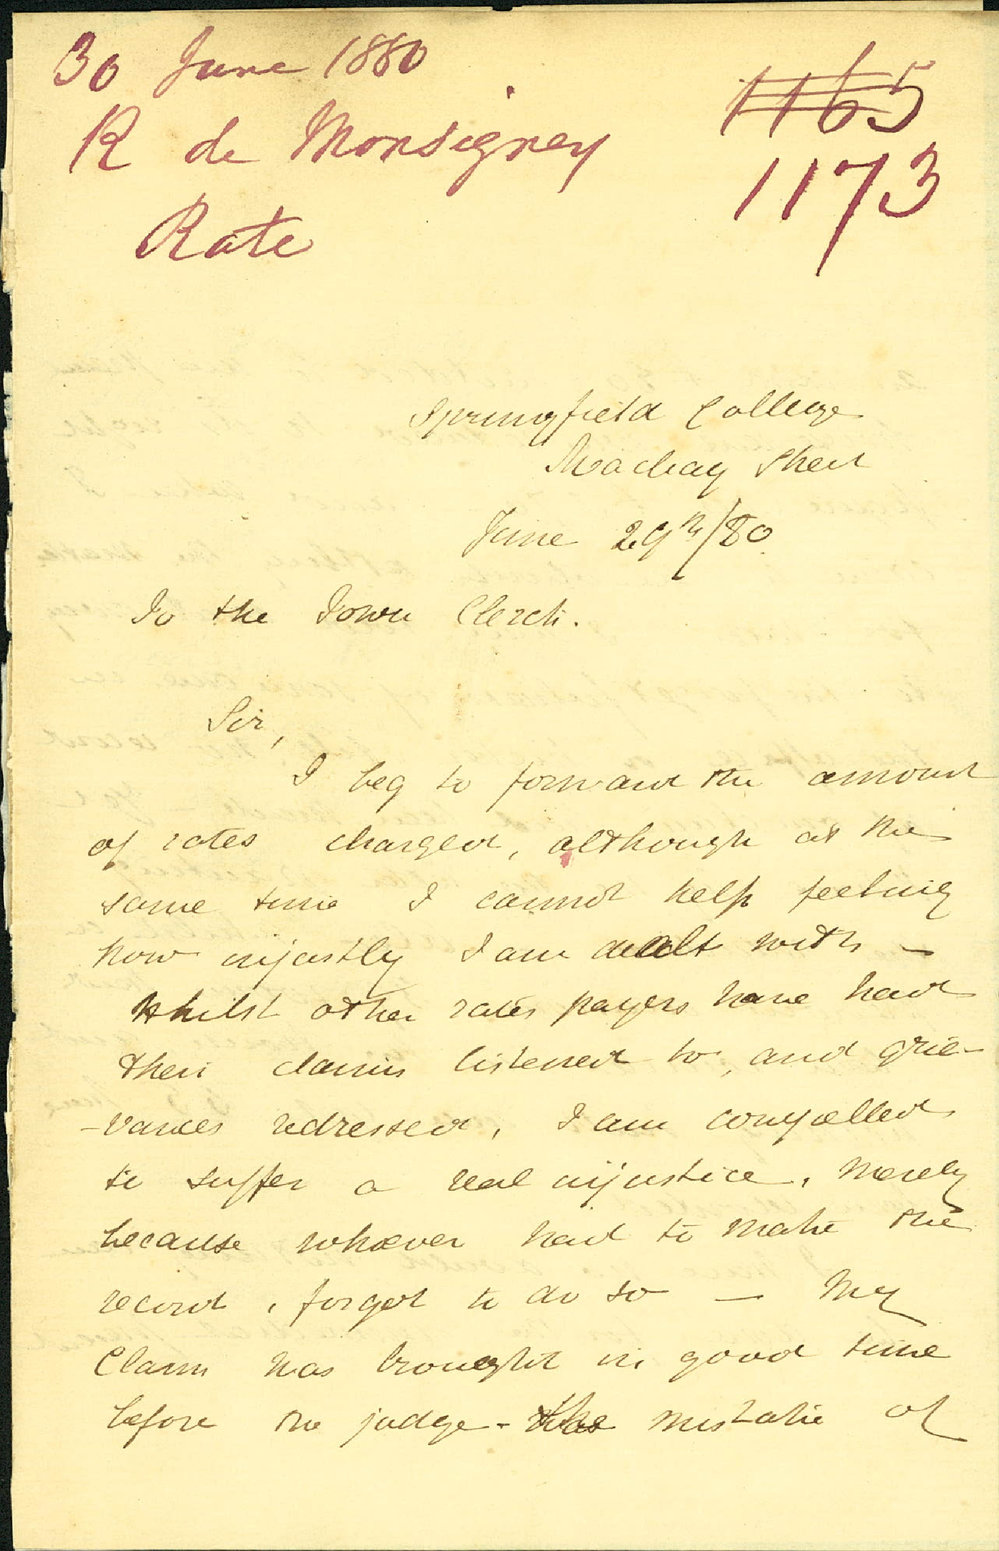 30 June 1880
R de Monsigney
Rate
1165
1173
Springfield College
Mackay Street
June 29th/80
To the Town Clerk.
Sir,
I beg to forward the amount
of rates charged, although at the
same time I cannot help feeling
how injustly I am dealt with —
Whilst other rates payers have had
their claims listened to, and grie-
-vances redressed, I am compelled
to suffer a real injustice, merely
because whoever had to make the
record, forgot to do so — My
Claim was brought in good time
before the judge - the mistake of